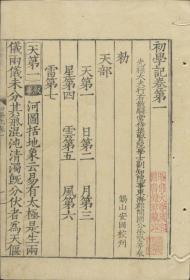 初學記卷第一
光祿大夫行右散騎常侍集賢院學士副知院事東海郡開國公徐堅等奉
勅　錫山安國校刊
天部
天第一　日第二　月第三
星第四　雲第五　風第六
雷第七
天第一　河圖括地象云易有太極是生兩
儀兩儀未分其氣混沌清濁既分伏者為天偃